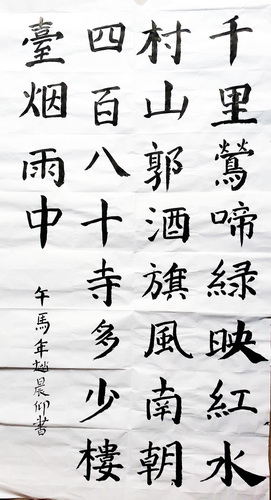 千里鶯啼緑映紅水
村山郭酒旗風南朝
四百八十寺多少樓
臺烟雨中
午馬年趙晨仰書